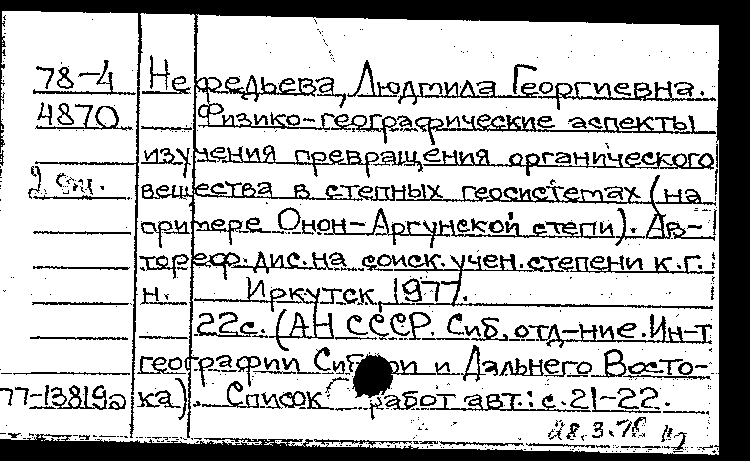 78-4 Нефедьева, Людмила Георгиевна.
4870 Физико-географические аспекты
изучения превращения органического
2 эк. вещества в степных геосистемах (на
примере Онон-Аргунской степи). Ав-
тореф. дис. на соиск. учен. степени к.г.
н. Иркутск, 1977.
22с. (АН СССР. Сиб. отд-ние. Ин-т
географии Сибири и Дальнего Восто-
77-13819а ка). Список работ авт.: с. 21-22.
28.3.78